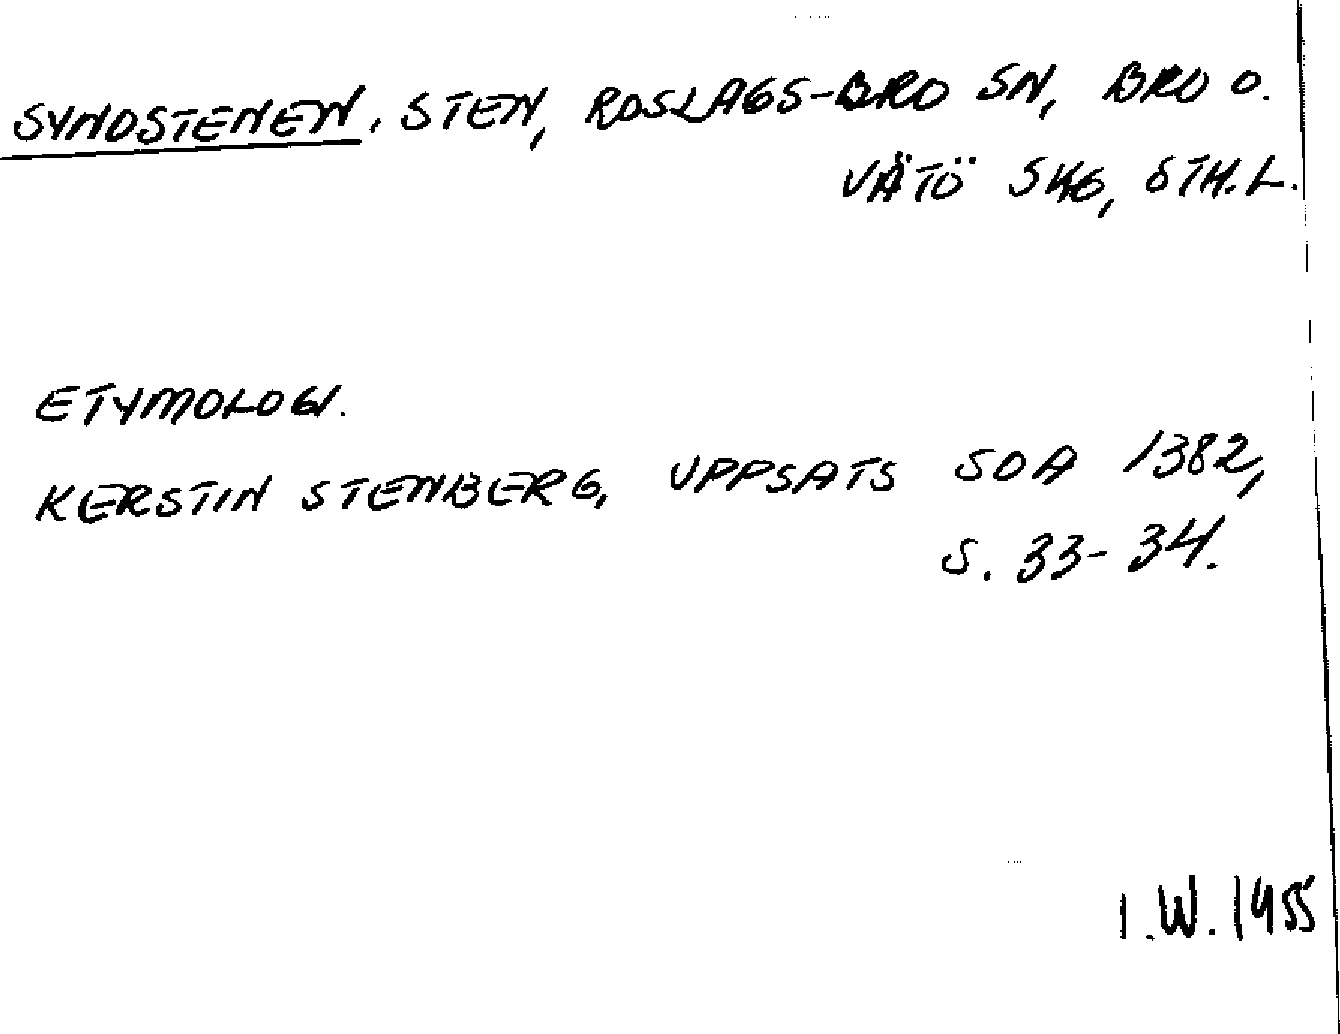 SYNDSTENEN, STEN, ROSLAGS-BRO SN, BRO O.
VÄTÖ SKG, STH.L.
ETYMOLOGI.
KERSTIN STENBERG, UPPSATS SOA 1382,
S. 33-34.
I.W. 1955